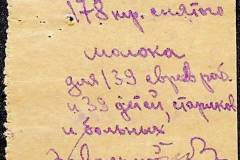 178 кгр. снятого
молока
для 139 евреев раб
и 39 детей, стариков
и больных